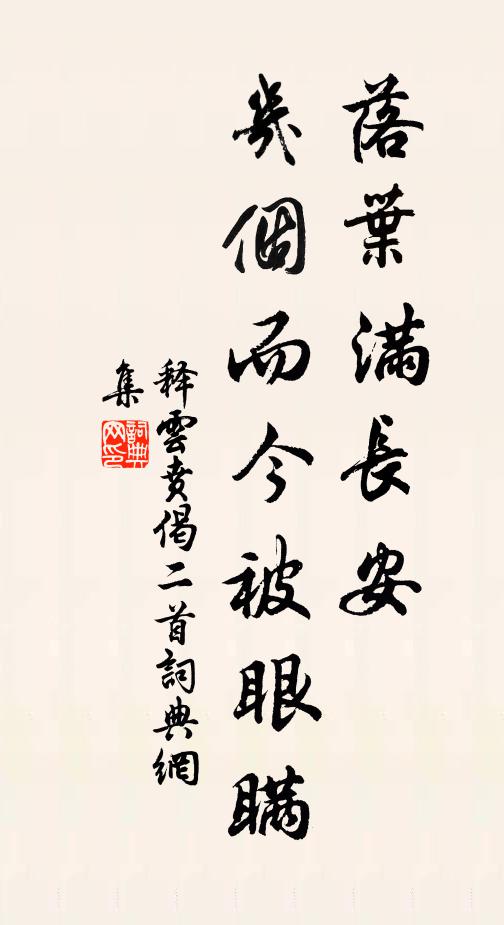 落葉滿長安
幾個而今被眼瞞
释雲賁偈二首詞典網
集
詞典
网印